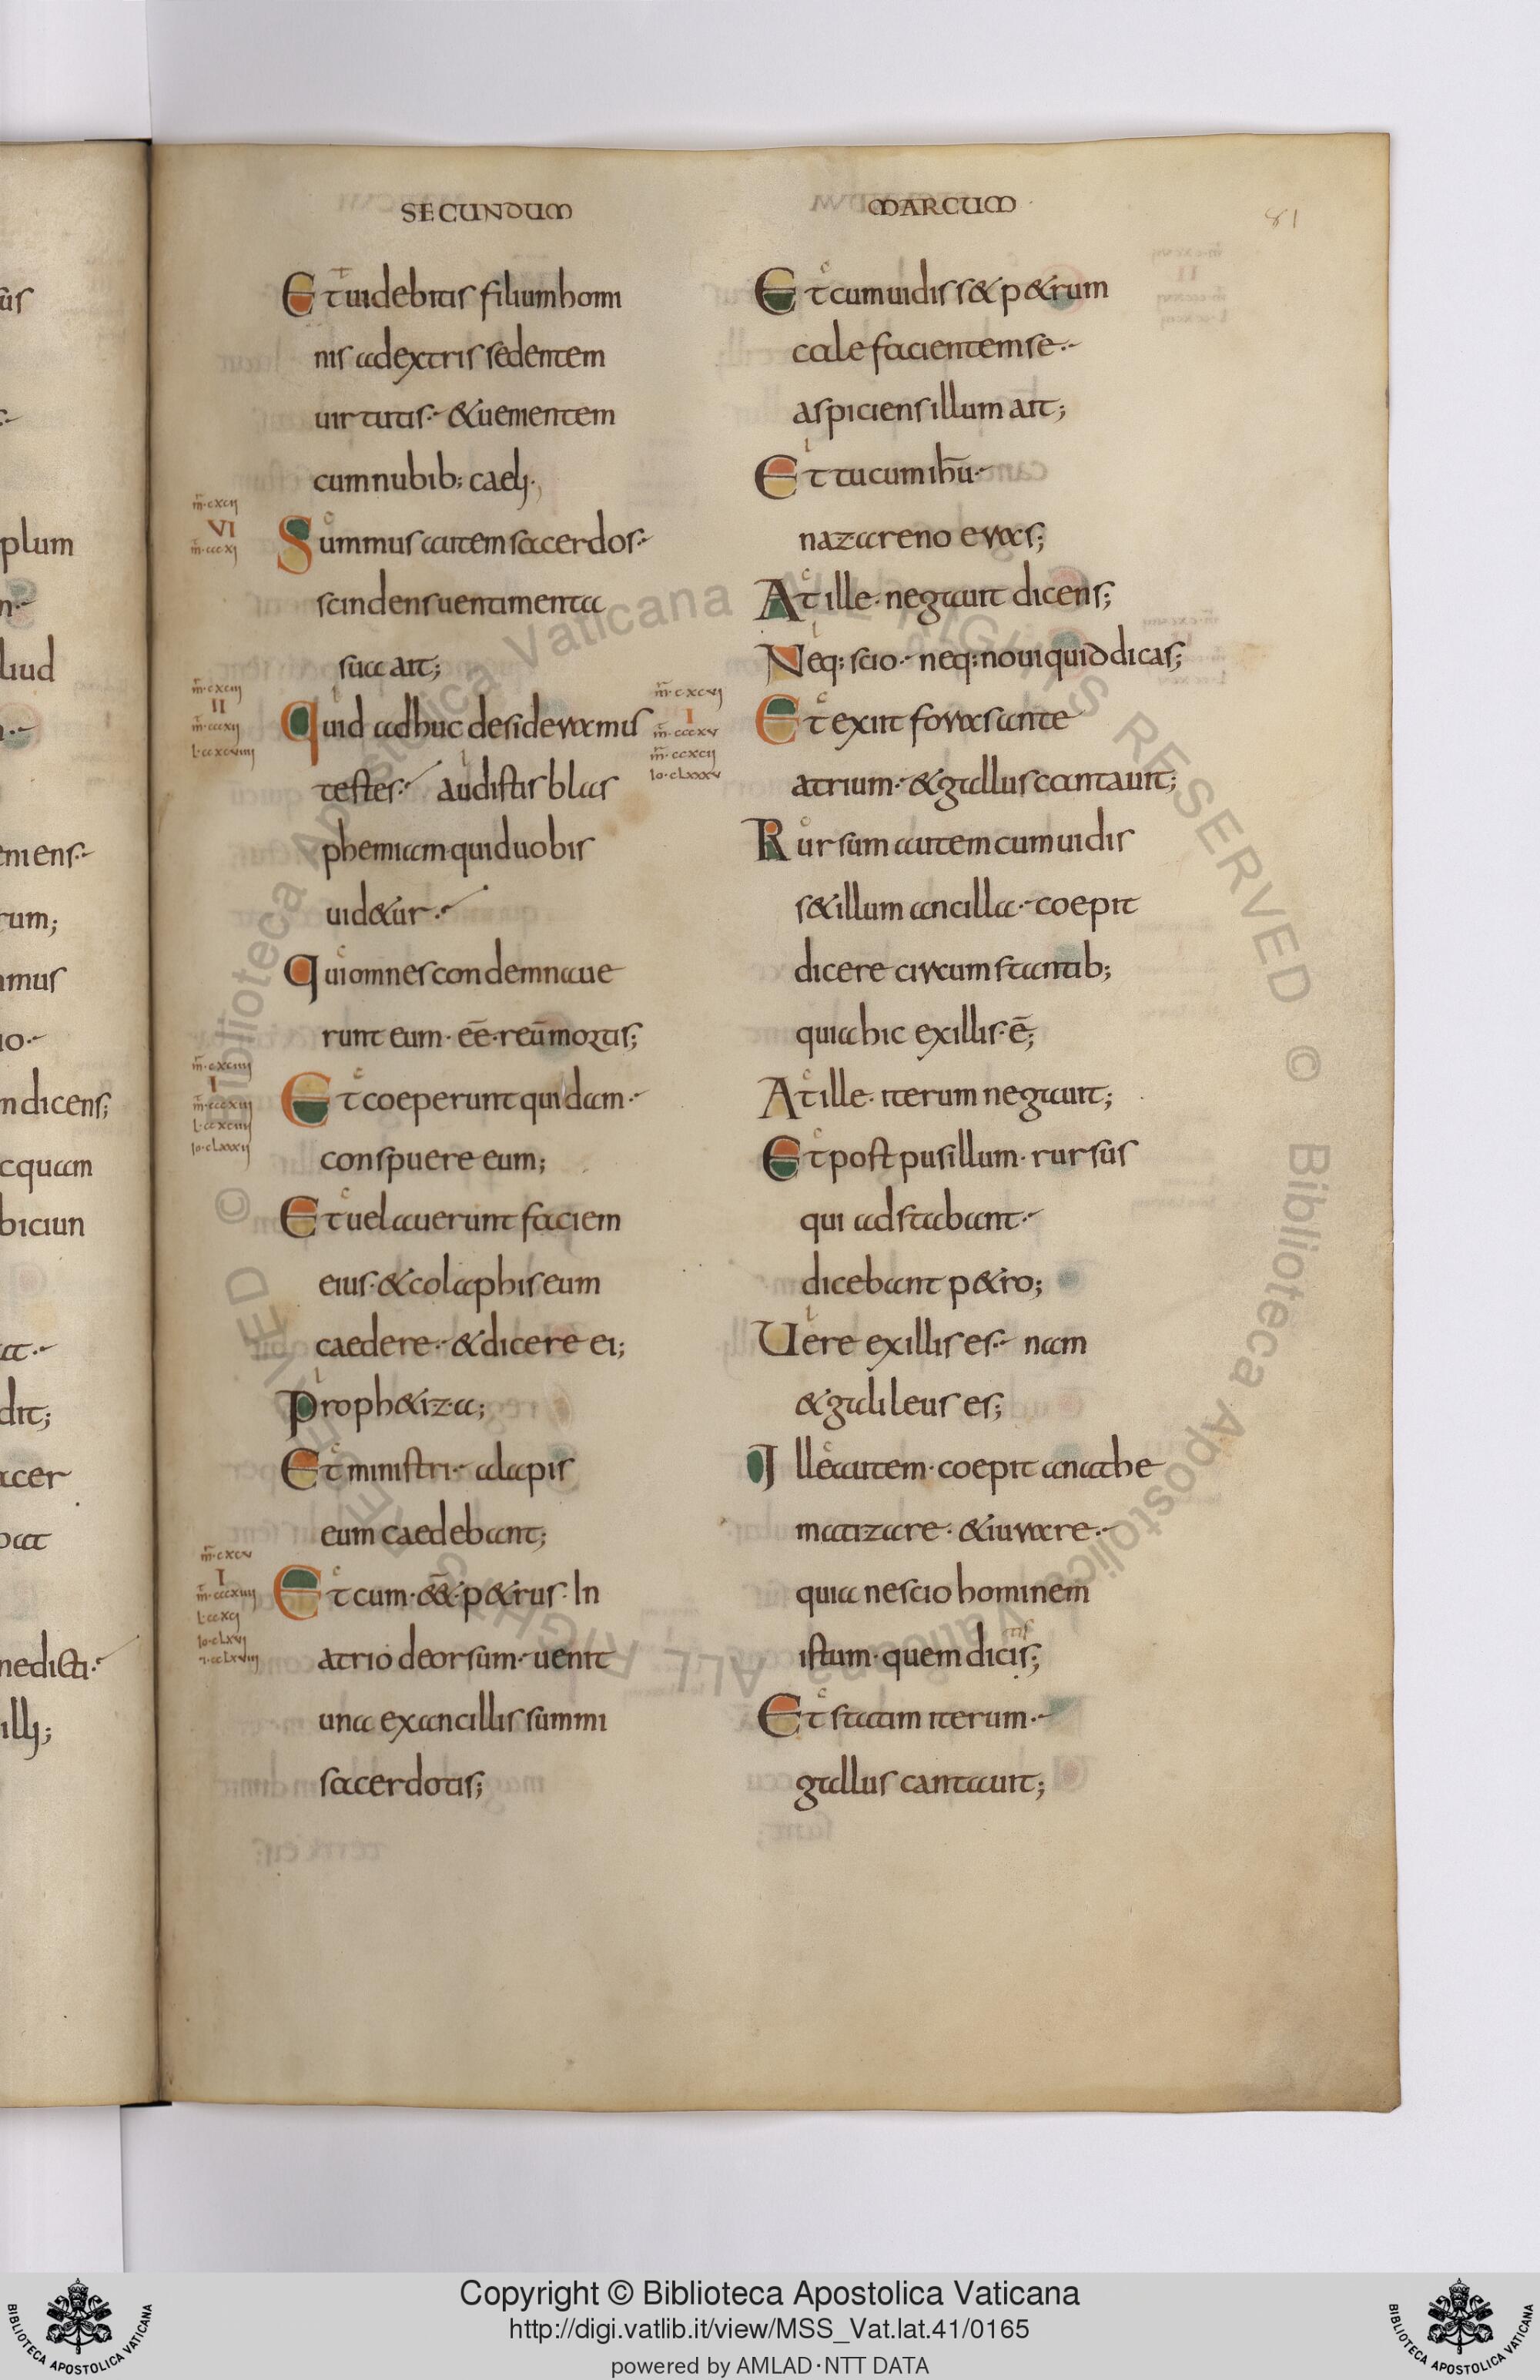 SECUNDUM
MARCUM
81
Et uidebitis filium homi
nis a dextris sedentem
uirtutis· & uenientem
cum nubib; caeli·
m̄·cxcii
VI
m̄·cccxi
Summus autem sacerdos·
scindens uentimenta
sua ait;
m̄·cxciii
II
m̄·cccxii
l·ccxcviiii
Quid adhuc desideramus
testes· audistis blas
phemiam· quid uobis
uid&ur·
Qui omnes condemnaue
runt eum· ee̅· reu̅ mortis;
m̄·cxciiii
I
m̄·cccxiii
l·ccxciiii
Io·clxxxii
Et coeperunt quidam·
conspuere eum;
Et uelauerunt faciem
eius· & colaphis eum
caedere· & dicere ei;
Proph&iza;
Et ministri· alapis
eum caedebant;
m̄·cxcv
I
m̄·cccxiiii
l·ccxci
Io·clxvi
Et cum· e&̅· p&rus· In
atrio deorsum· uenit
una ex ancillis summi
sacerdotis;
Et cum uidiss& p&rum
calefacientem se·
aspiciens illum ait;
Et tu cum ihu̅·
nazareno eras;
At ille· negauit dicens;
Neq; scio· neq; noui quid dicas;
m̄·cxcvi
I
m̄·cccxv
m̄·ccxcii
Io·clxxxv
Et exiit foras ante
atrium· & gallus cantauit;
Rursum autem cum uidis
s& illum ancilla· coepit
dicere circumstantib;
quia hic ex illis· e̅;
At ille· iterum negauit;
Et post pusillum· rursus
qui adstabant·
dicebant p&ro;
Uere ex illis es· nam
& galileus es;
Ille autem· coepit anathe
matizare· & iurare·
quia nescio hominem
istum· quem dicis;
Et statim iterum·
gallus cantauit;
Copyright © Biblioteca Apostolica Vaticana
http://digi.vatlib.it/view/MSS_Vat.lat.41/0165
powered by AMLAD·NTT DATA